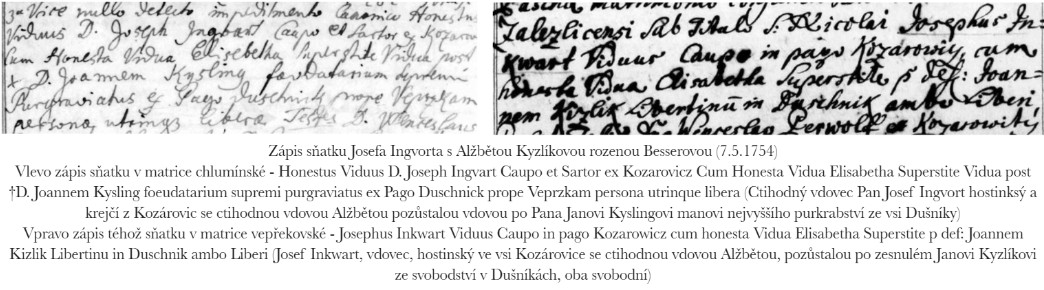 3ia Vice nullo detecto impedimento Canonico Honestus
Viduus D. Joseph Ingvart Caupo et Sartor ex Kozarow
Cum Honesta Vidua Elisabetha Superstite Vidua post
D. Joannem Kysling foeudatarium supremi
Purgraviatus ex Pago Duschnick prope Veprzkam
persona utrinq libera Testes D. Wenceslaus
Zalezlicensi Sub Titulo S. Nicolai Josephus In=
kwart Viduus Caupo in pago Kozarowitz cum
honesta Vidua Elisabetha Superstite p def: Joan=
nem Kizlik Libertinu in Duschnik ambo Liberi,
Wenceslao Perwolf ex Kozarowitz
Zápis sňatku Josefa Ingvorta s Alžbětou Kyzlíkovou rozenou Besserovou (7.5.1754)
Vlevo zápis sňatku v matrice chlumínské - Honestus Viduus D. Joseph Ingvart Caupo et Sartor ex Kozarovicz Cum Honesta Vidua Elisabetha Superstite Vidua post
†D. Joannem Kysling foeudatarium supremi purgraviatus ex Pago Duschnick prope Veprzkam persona utrinque libera (Ctihodný vdovec Pan Josef Ingvort hostinksý a
krejčí z Kozárovic se ctihodnou vdovou Alžbětou pozůstalou vdovou po Pana Janovi Kyslingovi manovi nejvyššího purkrabství ze vsi Dušníky)
Vpravo zápis téhož sňatku v matrice vepřekovské - Josephus Inkwart Viduus Caupo in pago Kozarowicz cum honesta Vidua Elisabetha Superstite p def: Joannem
Kizlik Libertinu in Duschnik ambo Liberi (Josef Inkwart, vdovec, hostinský ve vsi Kozárovice se ctihodnou vdovou Alžbětou, pozůstalou po zesnulém Janovi Kyzlíkovi
ze svobodství v Dušníkách, oba svobodní)